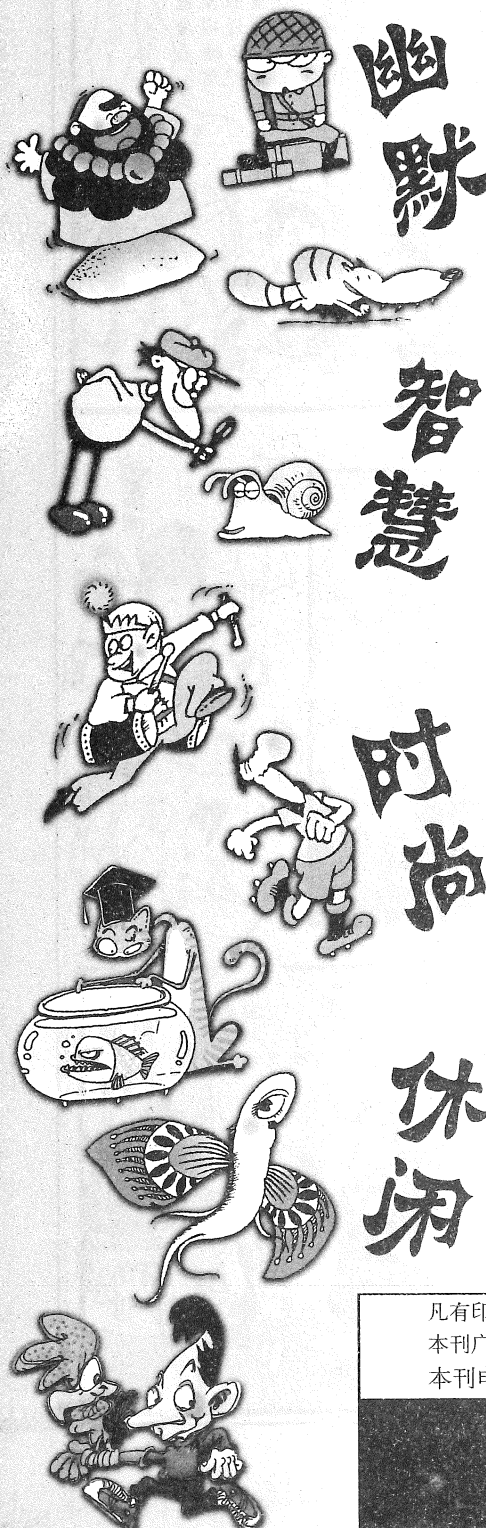 幽默
智慧
时尚
休闲
凡有印
本刊广
本刊电